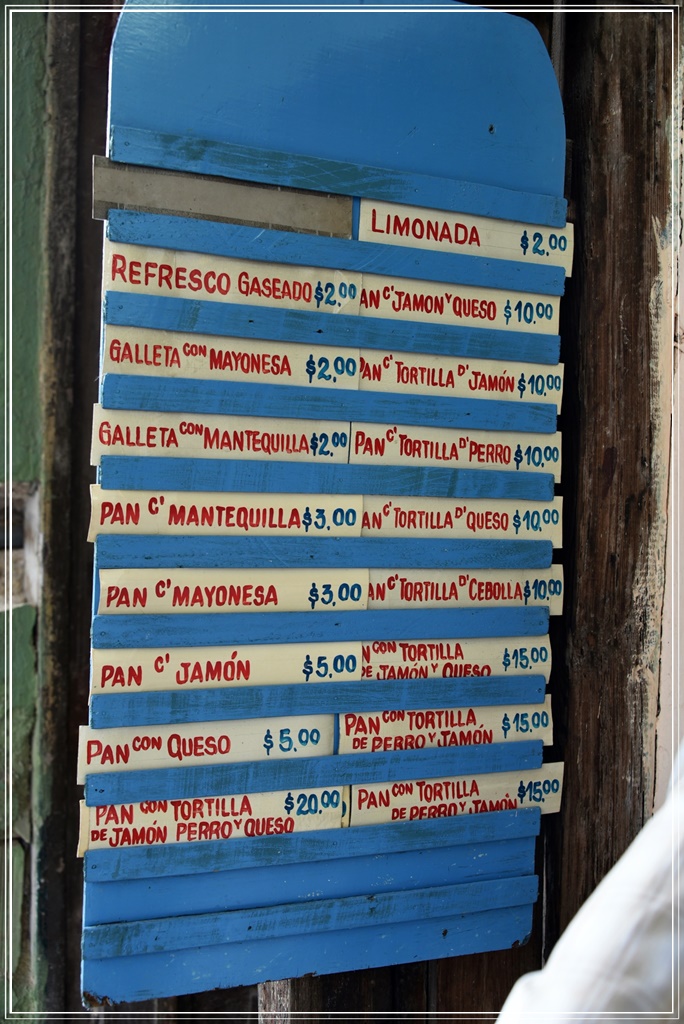 LIMONADA $2.00
REFRESCO GASEADO $2.00
AN C' JAMON Y QUESO $10.00
GALLETA CON MAYONESA $2.00
PAN C' TORTILLA D' JAMÓN $10.00
GALLETA CON MANTEQUILLA $2.00
PAN C' TORTILLA D' PERRO $10.00
PAN C' MANTEQUILLA $3.00
AN C' TORTILLA D' QUESO $10.00
PAN C' MAYONESA $3.00
AN C' TORTILLA D' CEBOLLA $10.00
PAN C' JAMÓN $5.00
N CON TORTILLA $15.00
DE JAMÓN Y QUESO
PAN CON QUESO $5.00
PAN CON TORTILLA $15.00
DE PERRO Y JAMÓN
PAN CON TORTILLA $20.00
DE JAMÓN PERRO Y QUESO
PAN CON TORTILLA $15.00
DE PERRO Y JAMÓN